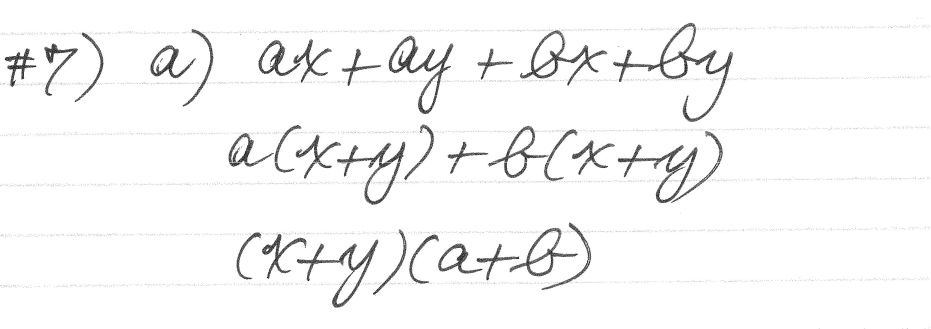 #7) a) ax + ay + bx + by
a(x+y) + b(x+y)
(x+y)(a+b)